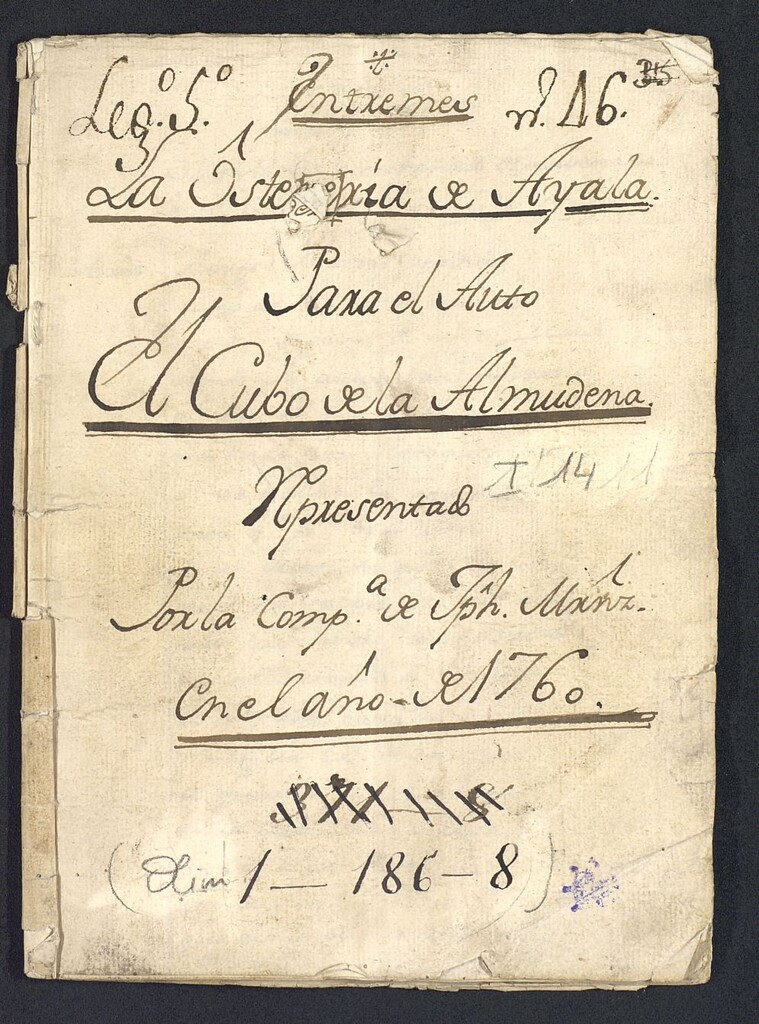 Entremes
Leg.º 5.º nº. 16.
La Ôstería de Ayala.
Para el Auto
El Cubo de la Almudena.
Rpresentado
I 14 11
Por la Comp.ª de Jph. Mrnz.
En el año de 1760.
(Olim 1 — 186 - 8)